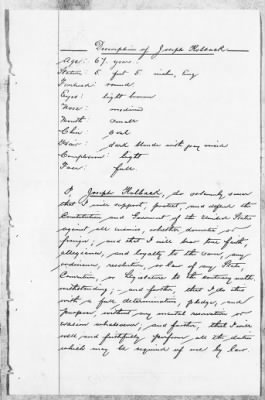 Description of Joseph Halbach
Age: 67 years.
Stature: 5 feet 5 inches, Eng
Forehead: round
Eyes: light brown
Nose: medium
Mouth: small
Chin: oval
Hair: dark blonde with gray mixed
Complexion: light
Face: full.
I, Joseph Halbach, do solemnly swear
that I will support, protect, and defend the
Constitution and Government of the United States
against all enemies, whether domestic or
foreign; and that I will bear true faith,
allegiance, and loyalty to the same, any
ordinance, resolution, or law of any State
Convention, or Legislature to the contrary notwith-
withstanding; and further, that I do this
with a full determination, pledge, and
purpose, without any mental reservation or
evasion whatsoever; and further, that I will
well and faithfully perform all the duties
which may be required of me by law.